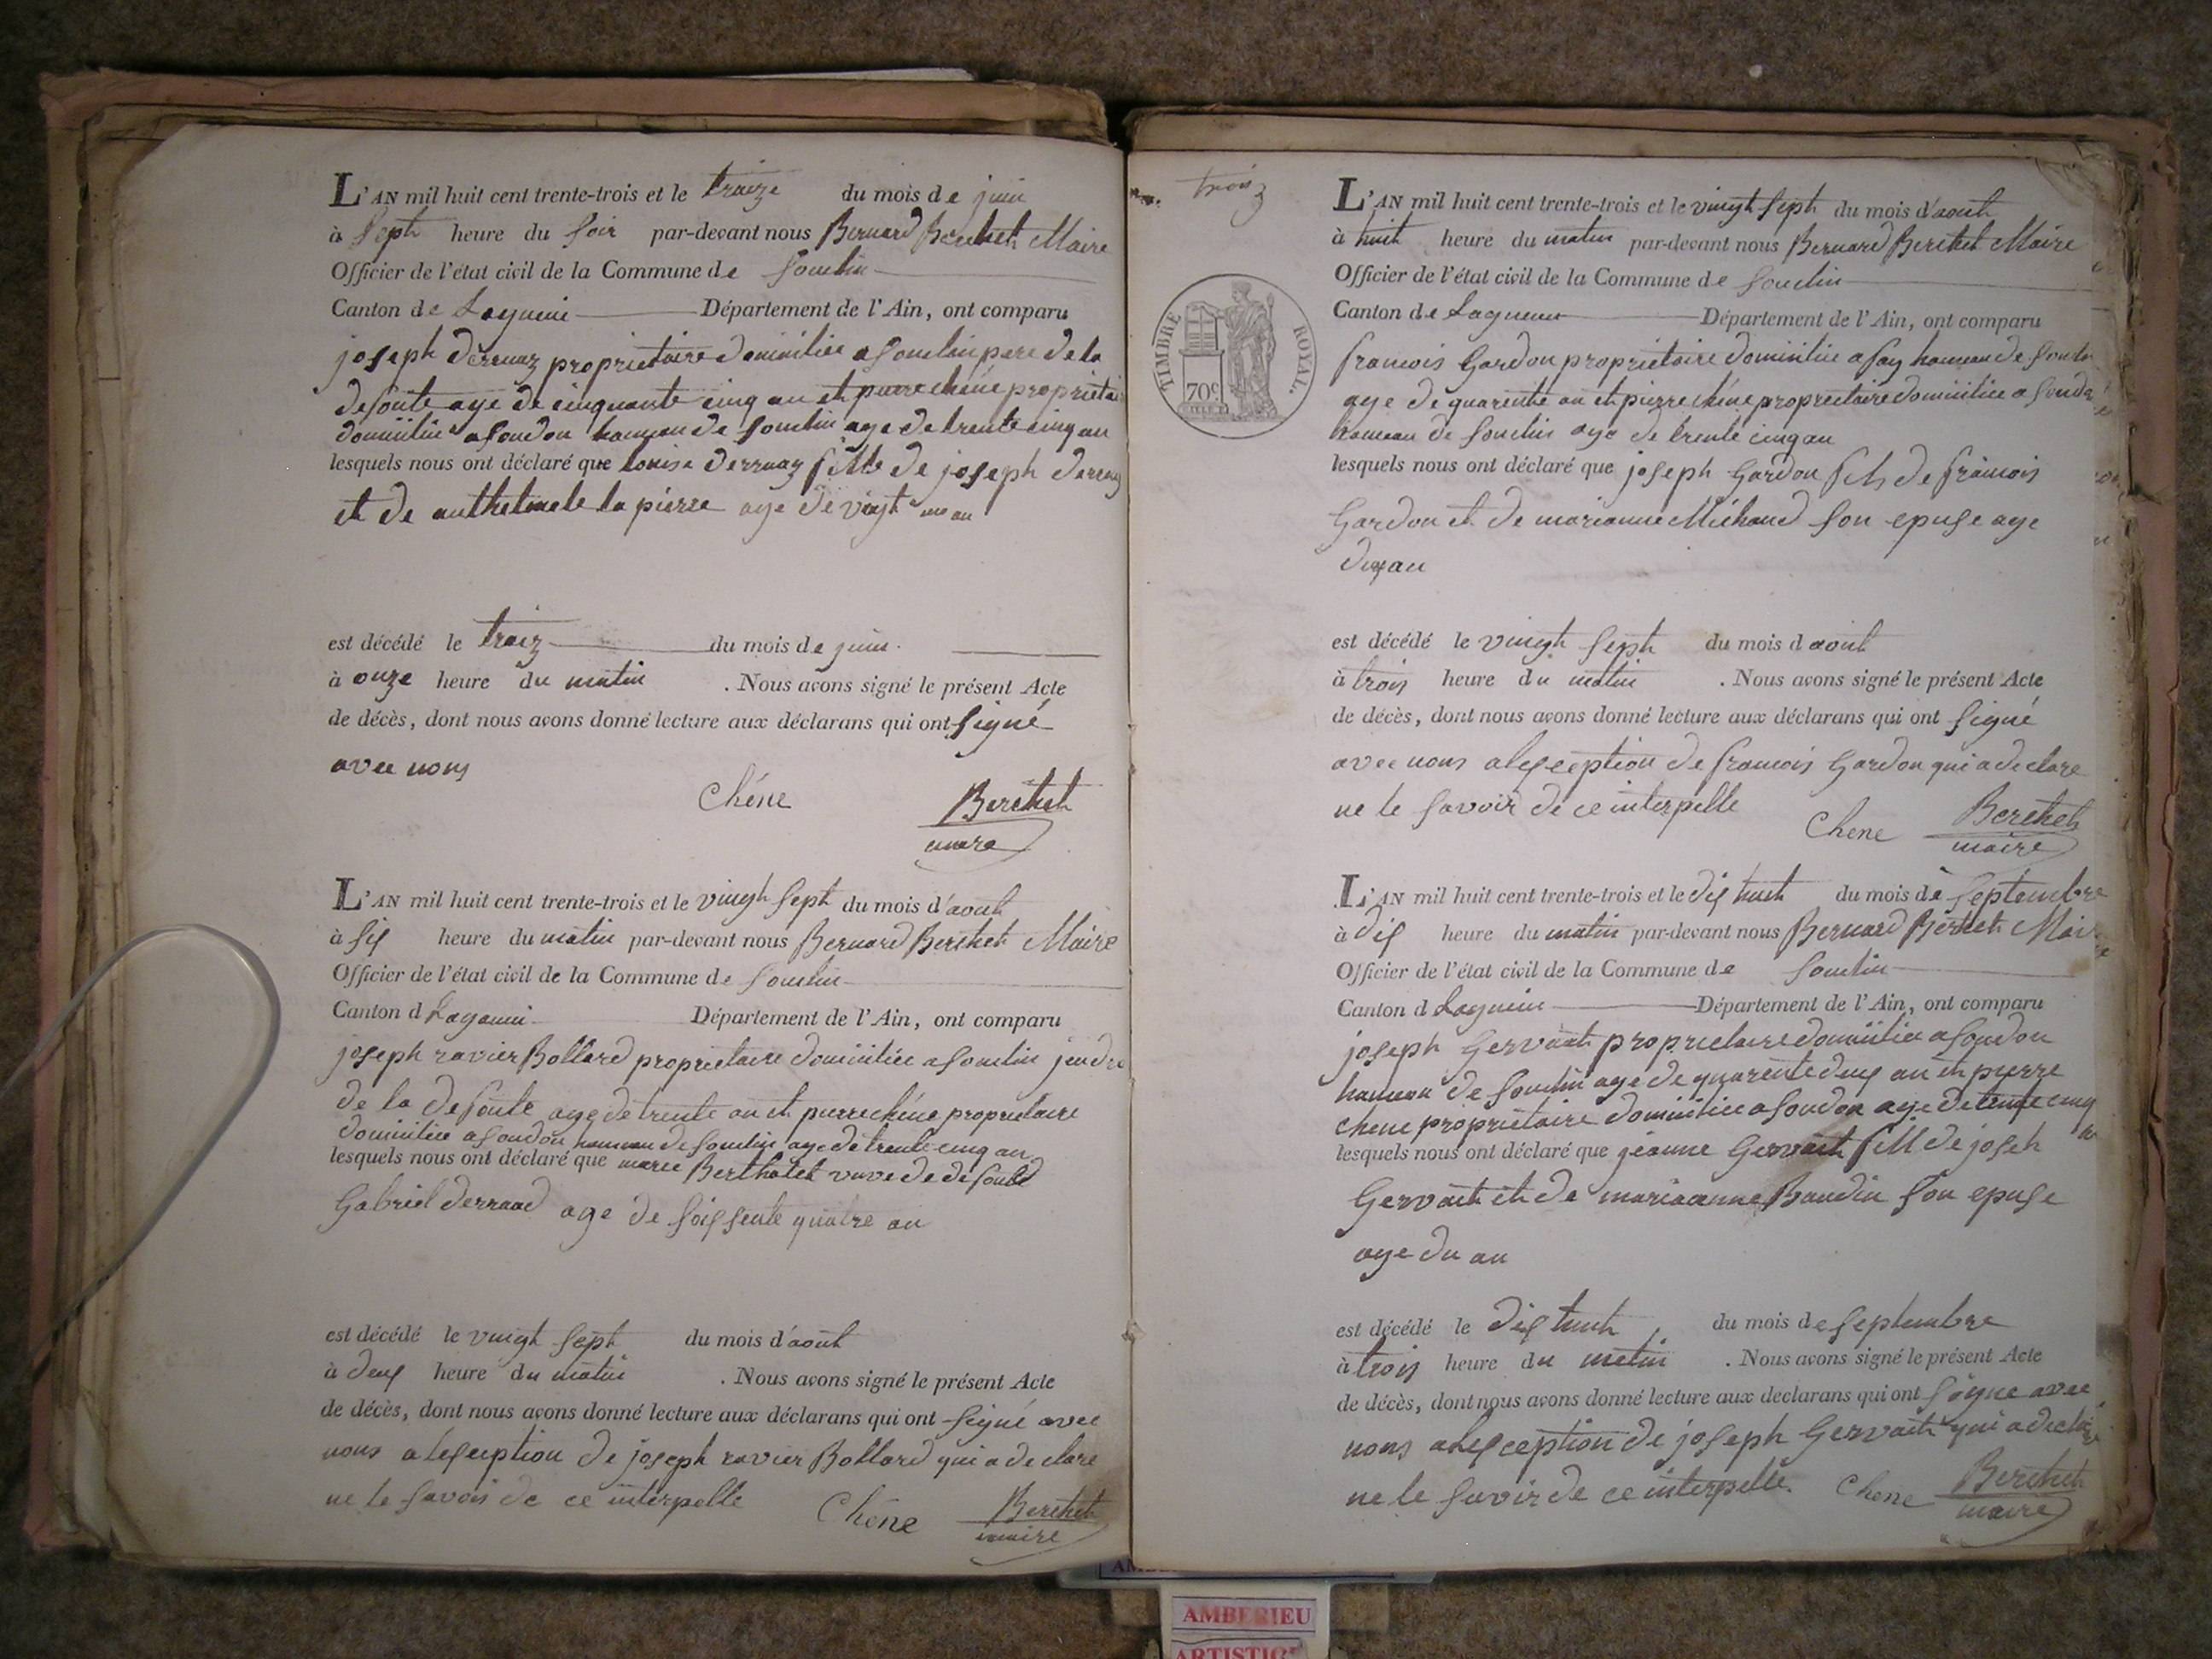 L'AN mil huit cent trente-trois et le traize du mois de juin
à sept heure du soir par-devant nous Bernard Berthet Maire
Officier de l'état civil de la Commune de Souclin
Canton de Lagnieu Département de l'Ain, ont comparu
joseph derruaz proprietaire domicilié a souclin pere de la
defonte age de cinquante cinq an et pierre chéne proprietaire
domicilié a soudon hameau de souclin age de trente cinq an
lesquels nous ont déclaré que louise derruaz fille de joseph derruaz
et de la pierre age de vingt un an
est décédé le traiz du mois de juin.
à onze heure du matin . Nous avons signé le présent Acte
de décès, dont nous avons donné lecture aux déclarans qui ont signé
avec nous
Chéne Berthet
maire
L'AN mil huit cent trente-trois et le vingt sept du mois d'aout
à six heure du matin par-devant nous Bernard Berthet Maire
Officier de l'état civil de la Commune de Souclin
Canton d Lagnieu Département de l'Ain, ont comparu
joseph ravier Bollard proprietaire domicilié a souclin jendre
de la defonte age de trente an et pierre chéne proprietaire
domicilié a soudon hameau de souclin age de trente cinq an
lesquels nous ont déclaré que marie Berthelet veuve de defont
Gabriel derruad age de soissente quatre an
est décédé le vingt sept du mois d'aout
à deux heure du matin . Nous avons signé le présent Acte
de décès, dont nous avons donné lecture aux déclarans qui ont signé avec
nous a lexception de joseph ravier Bollard qui a declare
ne le savoir de ce interpellé
Chéne Berthet
maire
trois
TIMBRE ROYAL.
70c
L'AN mil huit cent trente-trois et le vingt sept du mois d'aout
à huit heure du matin par-devant nous Bernard Berthet Maire
Officier de l'état civil de la Commune de Souclin
Canton de Lagnieu Département de l'Ain, ont comparu
francois Gardon proprietaire domicilié a fay hameau de
age de quarente an et pierre chéne proprietaire domicilié a soudon
hameau de souclin age de trente cinq an
lesquels nous ont déclaré que joseph Gardon fils de francois
Gardon et de marianne Michaud son epuse age
dix an
est décédé le vingt sept du mois d aout
à trois heure du matin . Nous avons signé le présent Acte
de décès, dont nous avons donné lecture aux déclarans qui ont signé
avec nous a lexception de francois Gardon qui a declare
ne le savoir de ce interpelle
Chene Berthet
maire
L'AN mil huit cent trente-trois et le dix huit du mois de septembre
à dix heure du matin par-devant nous Bernard Berthet Maire
Officier de l'état civil de la Commune de Souclin
Canton d Lagnieu Département de l'Ain, ont comparu
joseph Gervait proprietaire domicilié a soudon
hameau de souclin age de quarente deux an et pierre
chene proprietaire domicilié a soudon age de trente cinq an
lesquels nous ont déclaré que jeanne Gervait fill de joseh
Gervait et de marianne Baudin son epuse
age du an
est décédé le dix huit du mois de septembre
à trois heure du metin . Nous avons signé le présent Acte
de décès, dont nous avons donné lecture aux declarans qui ont signe avec
nous a lexception de joseph Gervait qui a declare
ne le savoir de ce interpellé.
Chene Berthet
maire
AMBERIEU